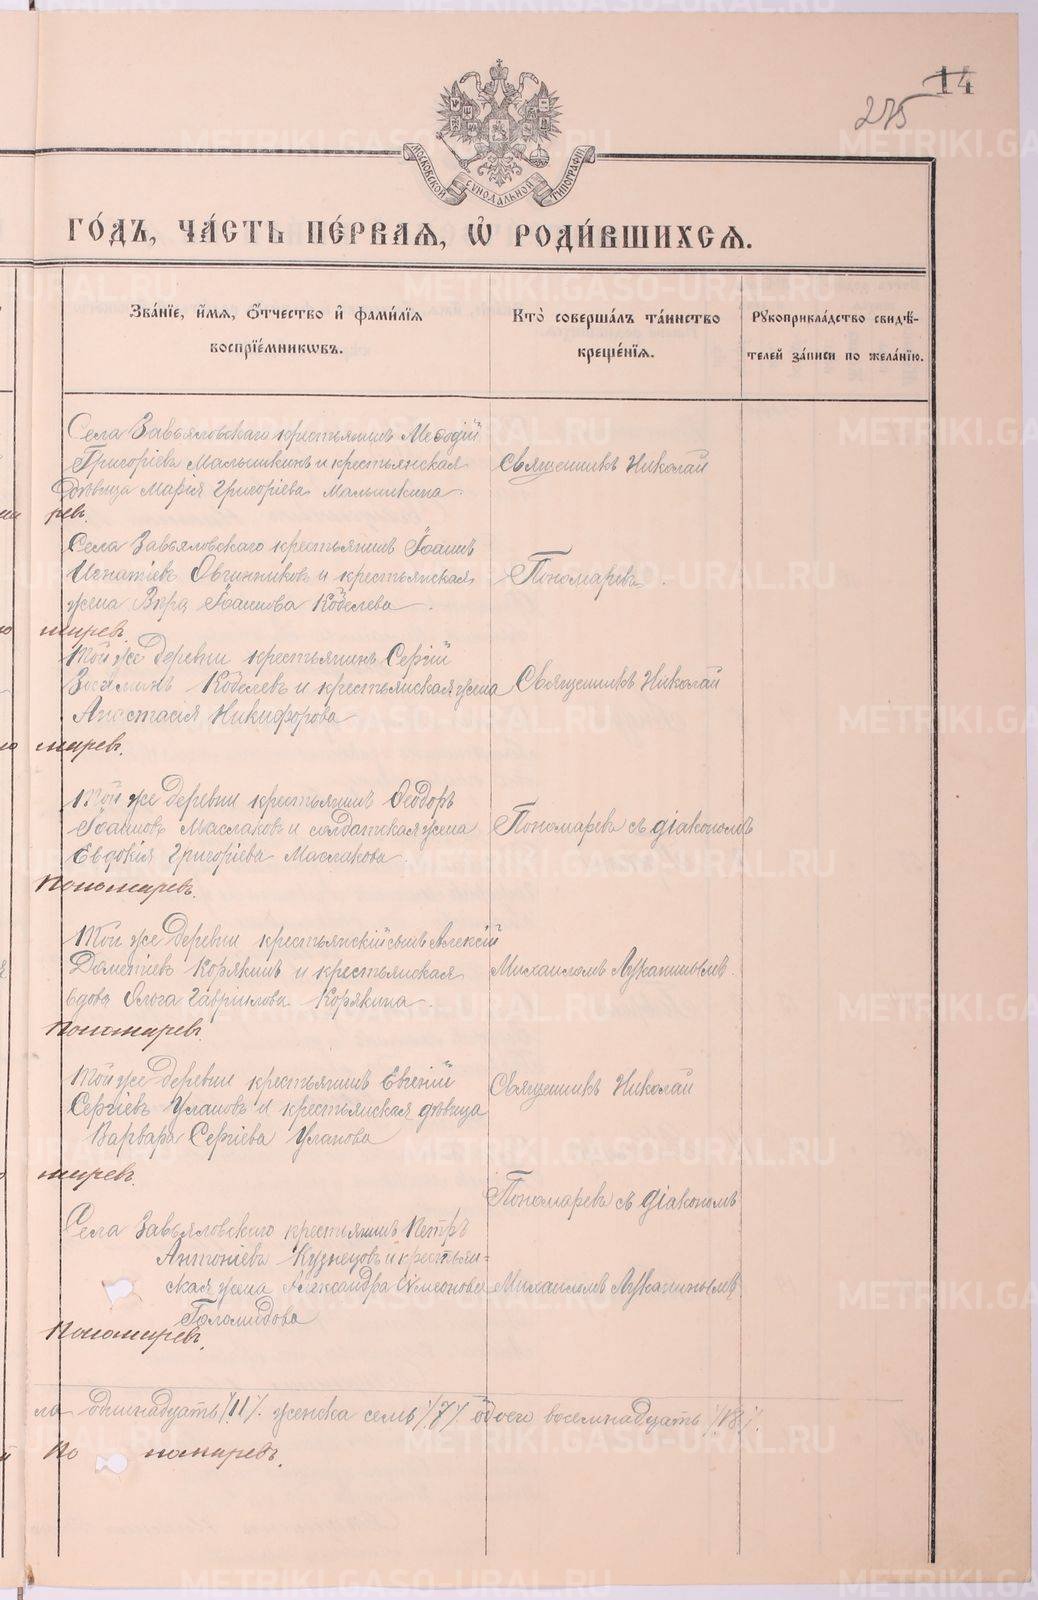 14
275
МОСКОВСКОЙ СѴНОДАЛЬНОЙ ТИПОГРАФІИ
ГО́ДЪ, ЧА́СТЬ ПЕ́РВАЯ, Ѡ҆ РОДИ́ВШИХСЯ.
Зва́нїе, и҆́мя, ѻ҆́тчество и҆ фами́лїя
воспрїе́мникѡвъ.
Кто̀ соверша́лъ та́инство
креще́нїя.
Рꙋкоприкла́дство свидѣ́-
телей за́писи по жела́нїю.
Села Завьяловскаго крестьянинъ Меѳодій
Григоріевъ Малышкинъ и крестьянская
дѣвица Марія Григоріева Малышкина.
Священникъ Николай
ревъ.
Села Завьяловскаго крестьянинъ Іоаннъ
Игнатіевъ Овчинниковъ и крестьянская
жена Вѣра Іоаннова Кобелева.
Пономаревъ.
миревъ.
Той же деревни крестьянинъ Сергій
Кобелевъ и крестьянская жена
Анастасія Никифорова
Священникъ Николай
миревъ.
Той же деревни крестьянинъ Ѳеодоръ
Іоанновъ Маслаковъ и солдатская жена
Евдокія Григоріева Маслакова.
Пономаревъ съ діакономъ
Пономиревъ.
Той же деревни крестьянскій сынъ Алексій
Дометіевъ Корякинъ и крестьянская
вдова Ольга Гавриилова Корякина.
Михаиломъ Луканинымъ.
Пономиревъ.
Той же деревни крестьянинъ Евгеній
Сергіевъ Улановъ и крестьянская дѣвица
Варвара Сергіева Уланова
Священникъ Николай
миревъ.
Пономаревъ съ діакономъ
Села Завьяловскаго крестьянинъ Петръ
Антоніевъ Кузнецовъ и крестьян-
ская жена Александра Сѵмеонова
Голомидова
Михаиломъ Лукинимымъ
Пономиревъ.
ла одиннадцать /11/. женска семь /7/ обоего восемнадцать /18/.
По номиревъ.
METRIKI.GASO-URAL.RU